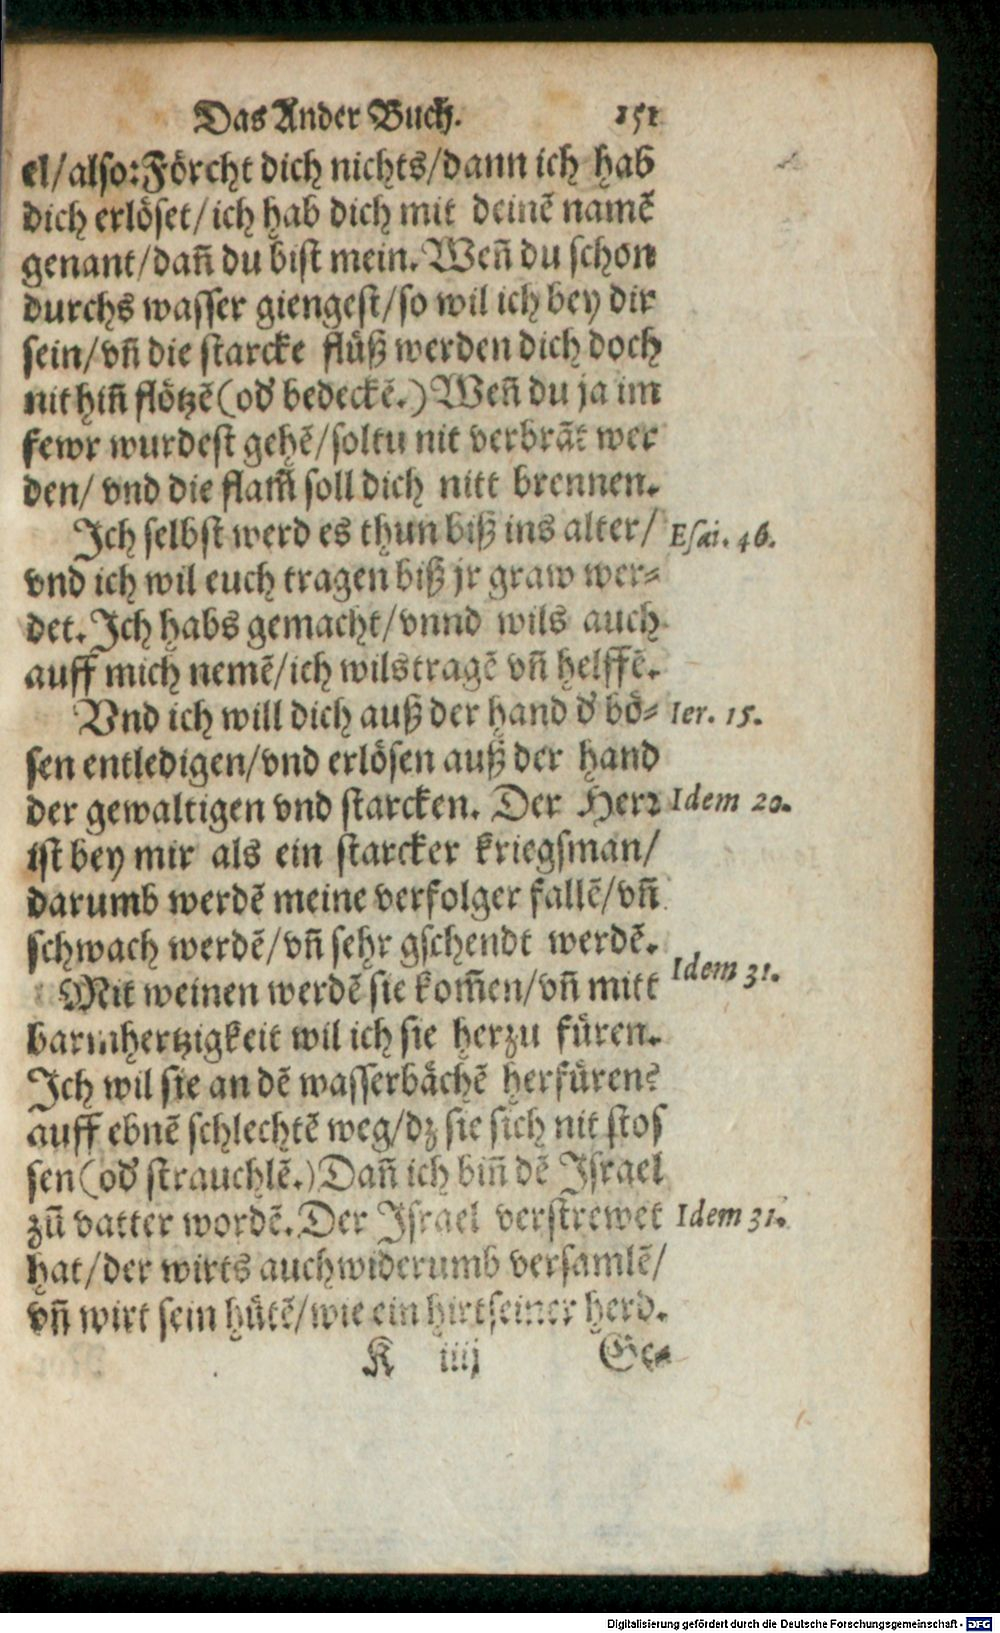 Das Ander Buch. 151
el/also: Förcht dich nichts/dann ich hab
dich erlöset/ich hab dich mit deinẽ namẽ
genant/dañ du bist mein. Weñ du schon
durchs wasser giengest/so wil ich bey dir
sein/vñ die starcke flüß werden dich doch
nit hiñ flötzẽ (od' bedeckẽ.) Weñ du ja im
fewr wurdest gehẽ/soltu nit verbrãt wer
den/ vnd die flam̃ soll dich nitt brennen.
Ich selbst werd es thun biß ins alter/ Esai. 46.
vnd ich wil euch tragen biß jr graw wer⸗
det. Ich habs gemacht/vnnd wils auch
auff mich nemẽ/ich wils tragẽ vñ helffẽ.
Vnd ich will dich auß der hand d' bö⸗ Ier. 15.
sen entledigen/vnd erlösen auß der hand
der gewaltigen vnd starcken. Der Herr Idem 20.
ist bey mir als ein starcker kriegsman/
darumb werdẽ meine verfolger fallẽ/vñ
schwach werdẽ/vñ sehr gschendt werdẽ.
Mit weinen werdẽ sie kom̃en/vñ mitt Idem 31.
barmhertzigkeit wil ich sie herzu füren.
Ich wil sie an dẽ wasserbächẽ herfüren:
auff ebnẽ schlechtẽ weg/dz sie sich nit stos
sen (od' strauchlẽ.) Dañ ich biñ dẽ Israel
zũ vatter wordẽ. Der Israel verstrewet Idem 31.
hat/der wirts auch widerumb versamlẽ/
vñ wirt sein hütẽ/wie ein hirt seiner herd.
K iiij Ge⸗
Digitalisierung gefördert durch die Deutsche Forschungsgemeinschaft - DFG